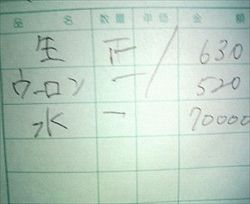 品 名 数量 単価 金 額
生 正 / 630
ウーロン 一 520
水 一 70000